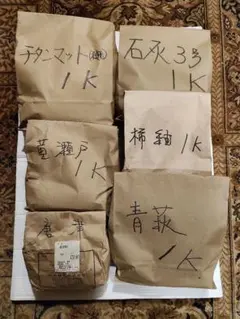 チタンマット
1K
石灰3号
1K
黄瀬戸
1K
柿釉 1K
唐津
青萩
1K